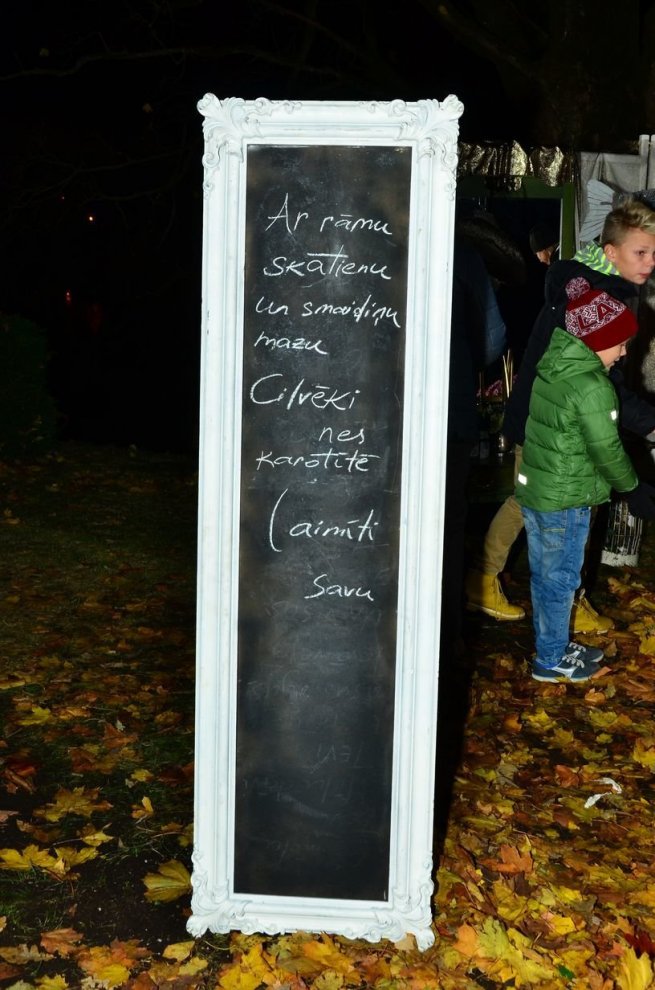 Ar rāmu
skatienu
un smaidiņu
mazu
Cilvēki
nes
karotītē
Laimīti
savu